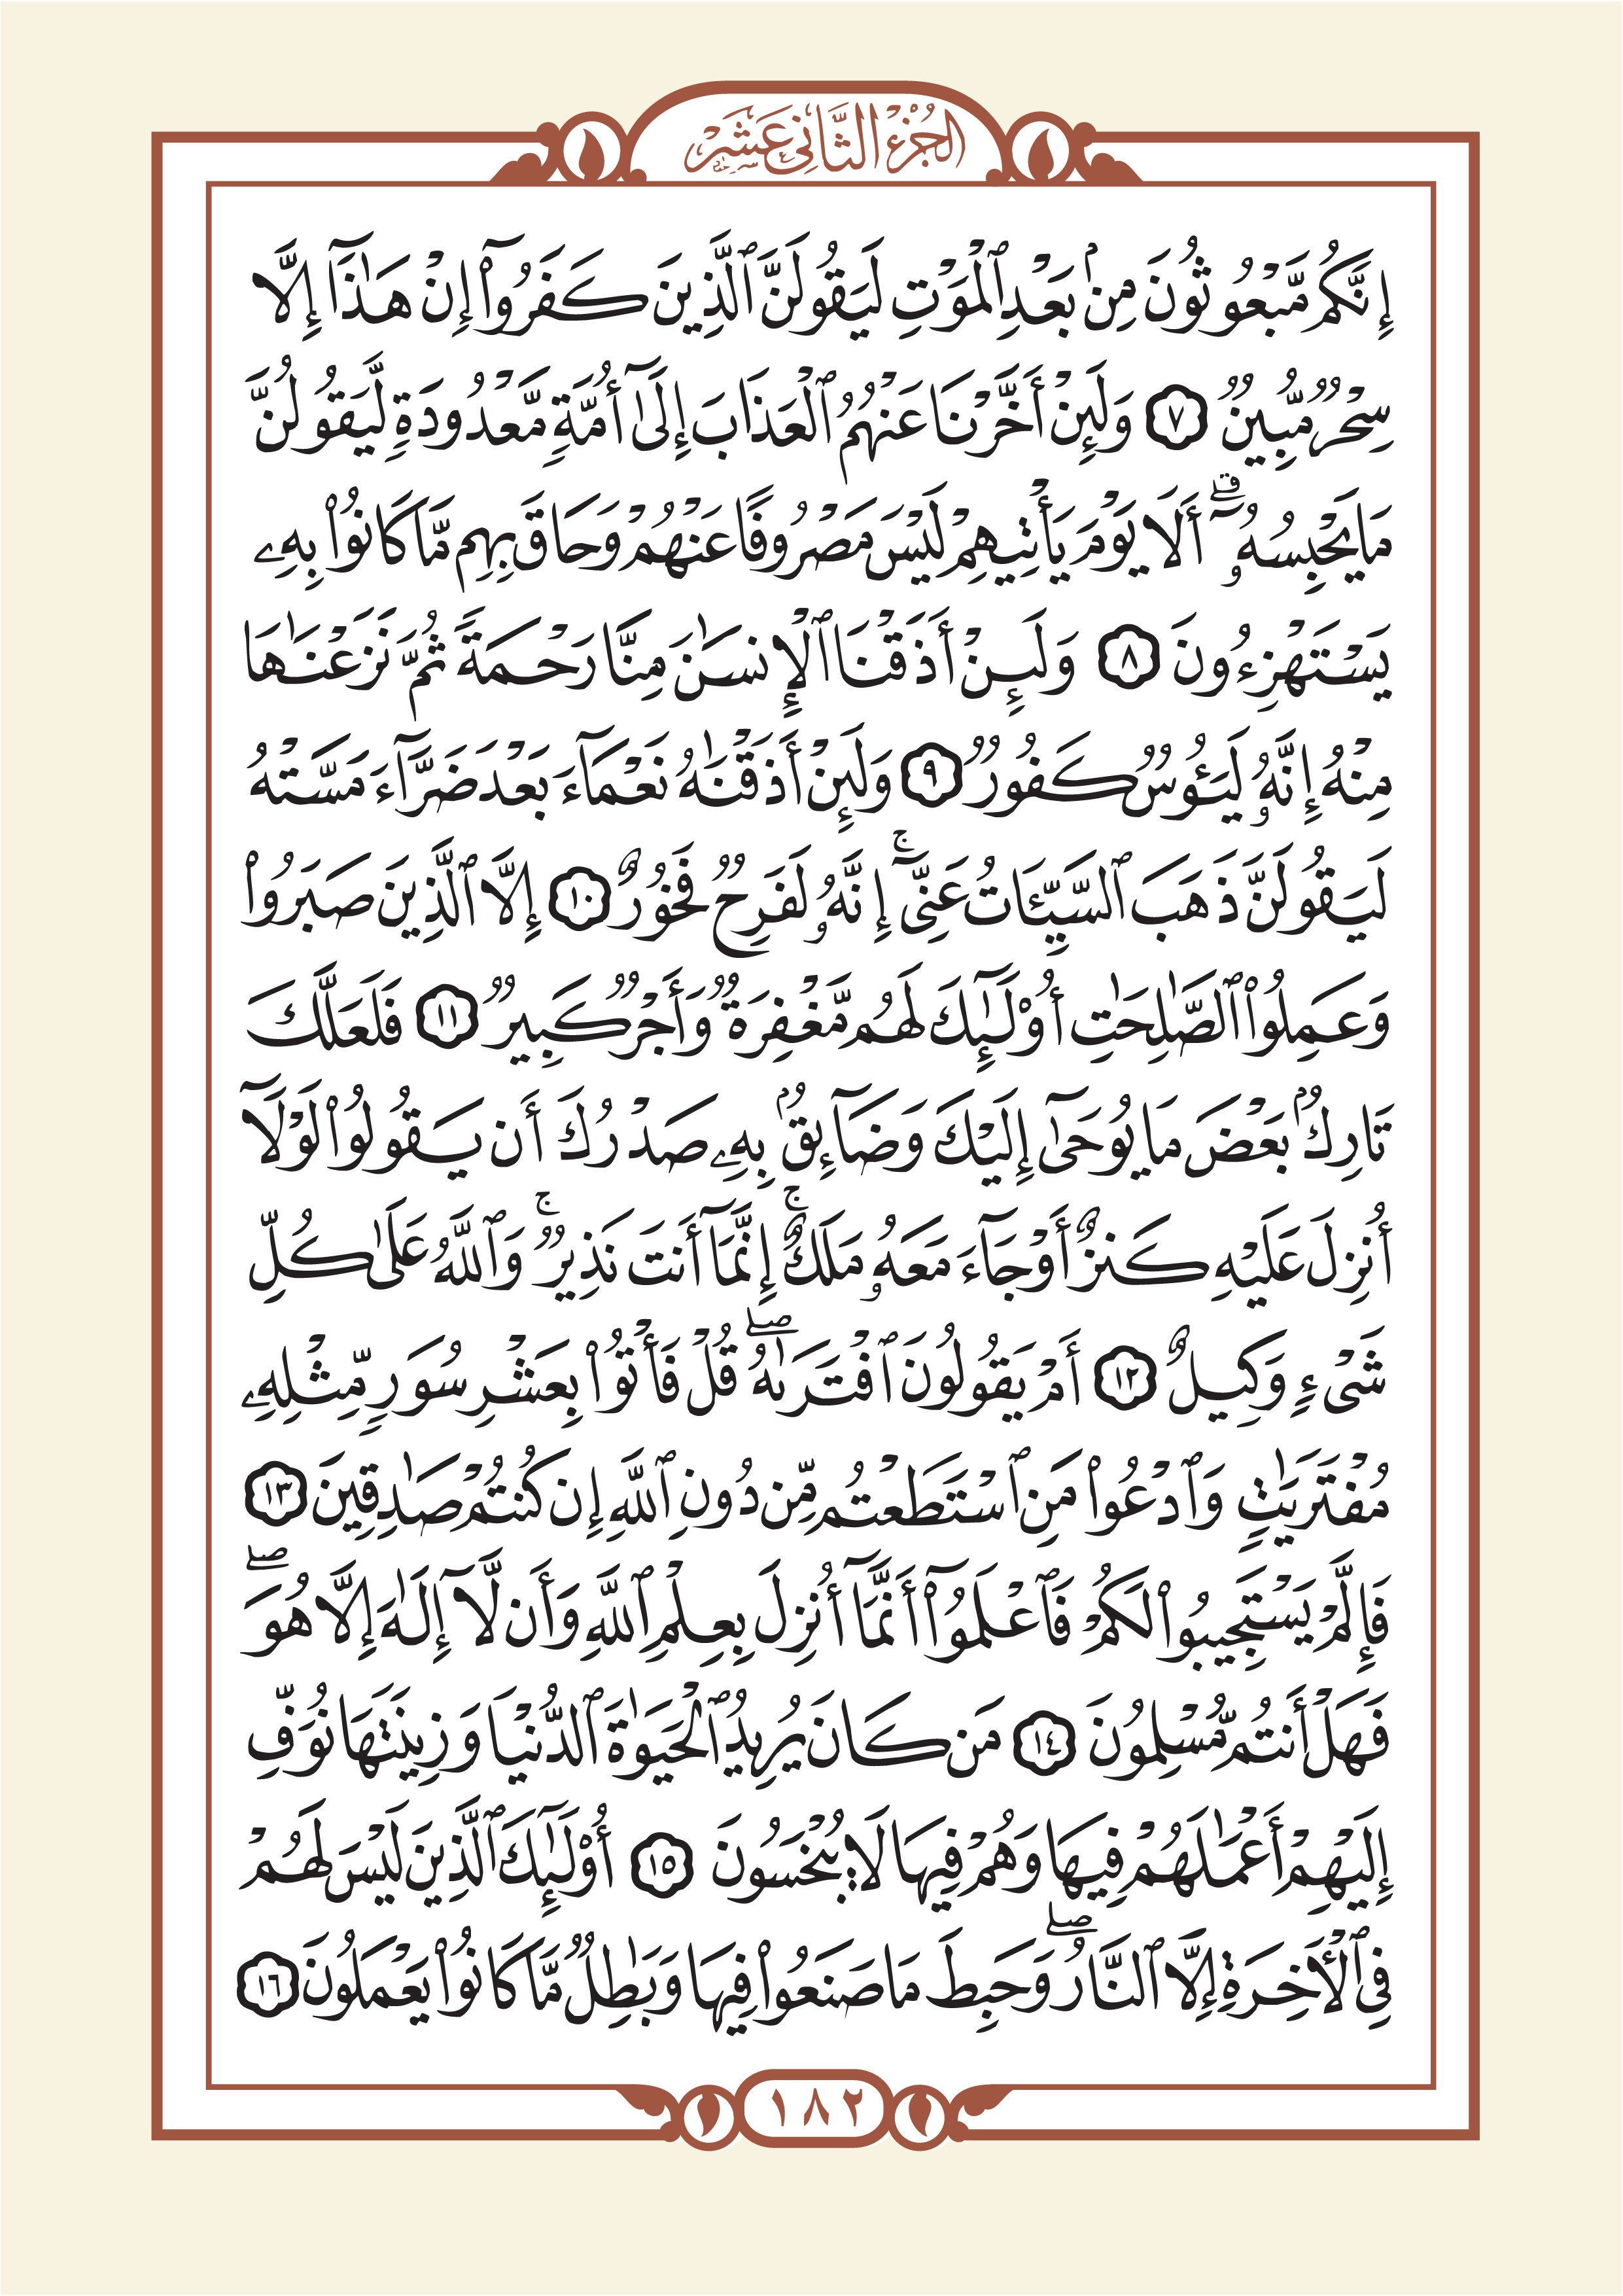 الجزء الثاني عشر
إِنَّكُم مَّبْعُوثُونَ مِنۢ بَعْدِ ٱلْمَوْتِ لَيَقُولَنَّ ٱلَّذِينَ كَفَرُوٓا۟ إِنْ هَـٰذَآ إِلَّا
سِحْرٌ مُّبِينٌ ٧ وَلَئِنْ أَخَّرْنَا عَنْهُمُ ٱلْعَذَابَ إِلَىٰٓ أُمَّةٍ مَّعْدُودَةٍ لَّيَقُولُنَّ
مَا يَحْبِسُهُۥٓ ۗ أَلَا يَوْمَ يَأْتِيهِمْ لَيْسَ مَصْرُوفًا عَنْهُمْ وَحَاقَ بِهِم مَّا كَانُوا۟ بِهِۦ
يَسْتَهْزِءُونَ ٨ وَلَئِنْ أَذَقْنَا ٱلْإِنسَـٰنَ مِنَّا رَحْمَةً ثُمَّ نَزَعْنَـٰهَا
مِنْهُ إِنَّهُۥ لَيَـُٔوسٌ كَفُورٌ ٩ وَلَئِنْ أَذَقْنَـٰهُ نَعْمَآءَ بَعْدَ ضَرَّآءَ مَسَّتْهُ
لَيَقُولَنَّ ذَهَبَ ٱلسَّيِّـَٔاتُ عَنِّىٓ ۚ إِنَّهُۥ لَفَرِحٌ فَخُورٌ ١٠ إِلَّا ٱلَّذِينَ صَبَرُوا۟
وَعَمِلُوا۟ ٱلصَّـٰلِحَـٰتِ أُو۟لَـٰٓئِكَ لَهُم مَّغْفِرَةٌ وَأَجْرٌ كَبِيرٌ ١١ فَلَعَلَّكَ
تَارِكٌۢ بَعْضَ مَا يُوحَىٰٓ إِلَيْكَ وَضَآئِقٌۢ بِهِۦ صَدْرُكَ أَن يَقُولُوا۟ لَوْلَآ
أُنزِلَ عَلَيْهِ كَنزٌ أَوْ جَآءَ مَعَهُۥ مَلَكٌ ۚ إِنَّمَآ أَنتَ نَذِيرٌ ۚ وَٱللَّهُ عَلَىٰ كُلِّ
شَىْءٍ وَكِيلٌ ١٢ أَمْ يَقُولُونَ ٱفْتَرَىٰهُ ۖ قُلْ فَأْتُوا۟ بِعَشْرِ سُوَرٍ مِّثْلِهِۦ
مُفْتَرَيَـٰتٍ وَٱدْعُوا۟ مَنِ ٱسْتَطَعْتُم مِّن دُونِ ٱللَّهِ إِن كُنتُمْ صَـٰدِقِينَ ١٣
فَإِلَّمْ يَسْتَجِيبُوا۟ لَكُمْ فَٱعْلَمُوٓا۟ أَنَّمَآ أُنزِلَ بِعِلْمِ ٱللَّهِ وَأَن لَّآ إِلَـٰهَ إِلَّا هُوَ ۖ
فَهَلْ أَنتُم مُّسْلِمُونَ ١٤ مَن كَانَ يُرِيدُ ٱلْحَيَوٰةَ ٱلدُّنْيَا وَزِينَتَهَا نُوَفِّ
إِلَيْهِمْ أَعْمَـٰلَهُمْ فِيهَا وَهُمْ فِيهَا لَا يُبْخَسُونَ ١٥ أُو۟لَـٰٓئِكَ ٱلَّذِينَ لَيْسَ لَهُمْ
فِى ٱلْـَٔاخِرَةِ إِلَّا ٱلنَّارُ ۖ وَحَبِطَ مَا صَنَعُوا۟ فِيهَا وَبَـٰطِلٌ مَّا كَانُوا۟ يَعْمَلُونَ ١٦
١٨٢